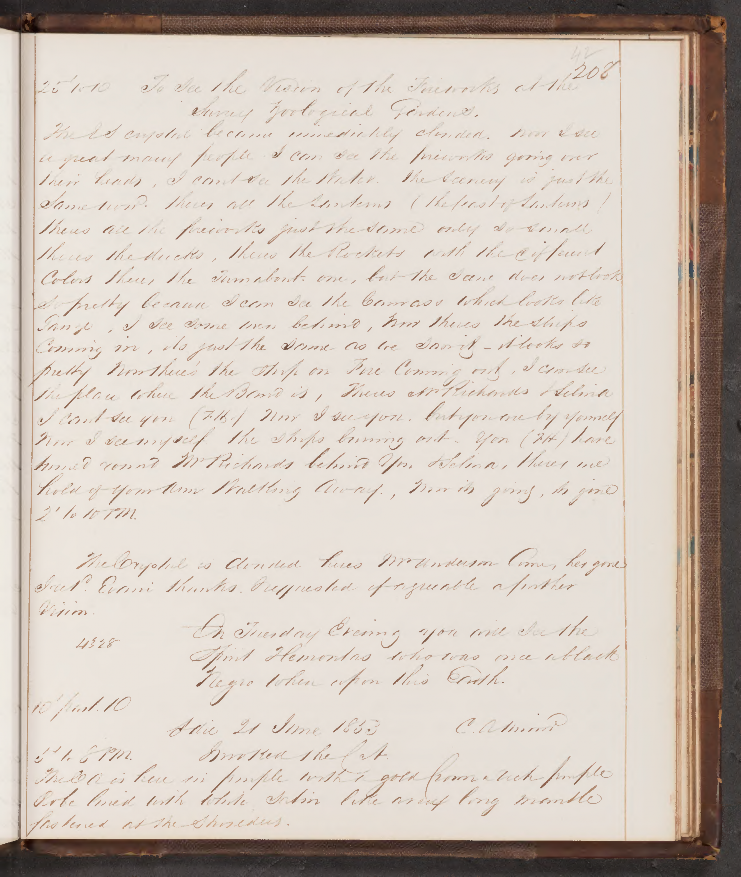 48
208
25' to 10 To See the Vision of the Fireworks at the
Surrey Zoological Gardens.
The C.S crystal became immediately clouded. now I see
a great many people I can see the fireworks going over
their heads, I cant see the Water. the Scenery is just the
Same now. theres all the Lanterns (the feast of Lanterns)
theres all the fireworks just the same only so small
theres the ducks, theres the Rockets with the different
Colors theres the Turnabout one, but the Scene does not look
so pretty because I can see the Canvass which looks like
, I see some men behind, Now theres the Ships
Coming in, its just the Same as we saw it - it looks so
pretty Now there's the Ship on Fire Coming out, I can see
the place where the Band is, Theres Mr Richards & Selina
I cant see you (F.H.) Now I see you. but you are by yourself
Now I see myself the Ships burning out. You (F.H.) have
turned round Mr Richards behind You & Selina, theres me
hold of your Arm Walking Away., Now its going, its gone
2' to 10 PM.
The Crystal is clouded heres Mr Anderson Come, hes gone
thanks. Requested if agreeable a further
Vision.
On Tuesday Evening you will See the
4328
Spirit who was once a black
Negro when upon this Earth.
10' past 10
21 June 1853
5' to 8 PM. Invoked the C.A.
The C A is here in purple with a gold Crown a rich purple
Robe lined with white Satin like a very long mantle
fastened at the Shoulders.